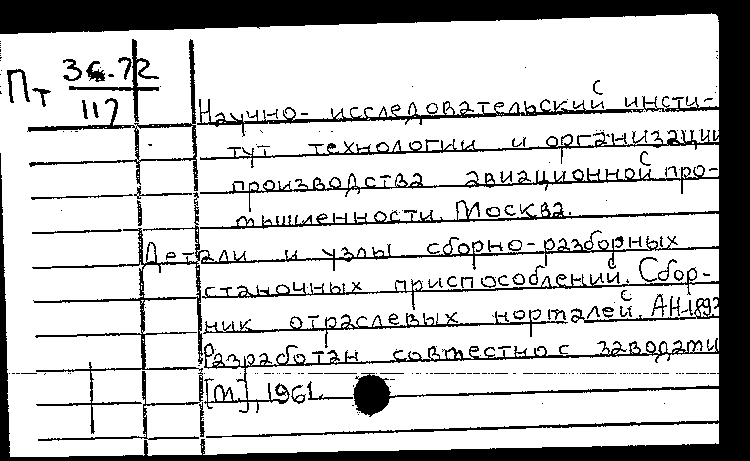 Пт 36-72
117
Научно-исследовательский инсти-
тут технологии и организации
производства авиационной про-
мышленности. Москва.
Детали и узлы сборно-разборных
станочных приспособлений. Сбор-
ник отраслевых нормалей. АН-1893
Разработан совместно с заводами
[М], 1961.